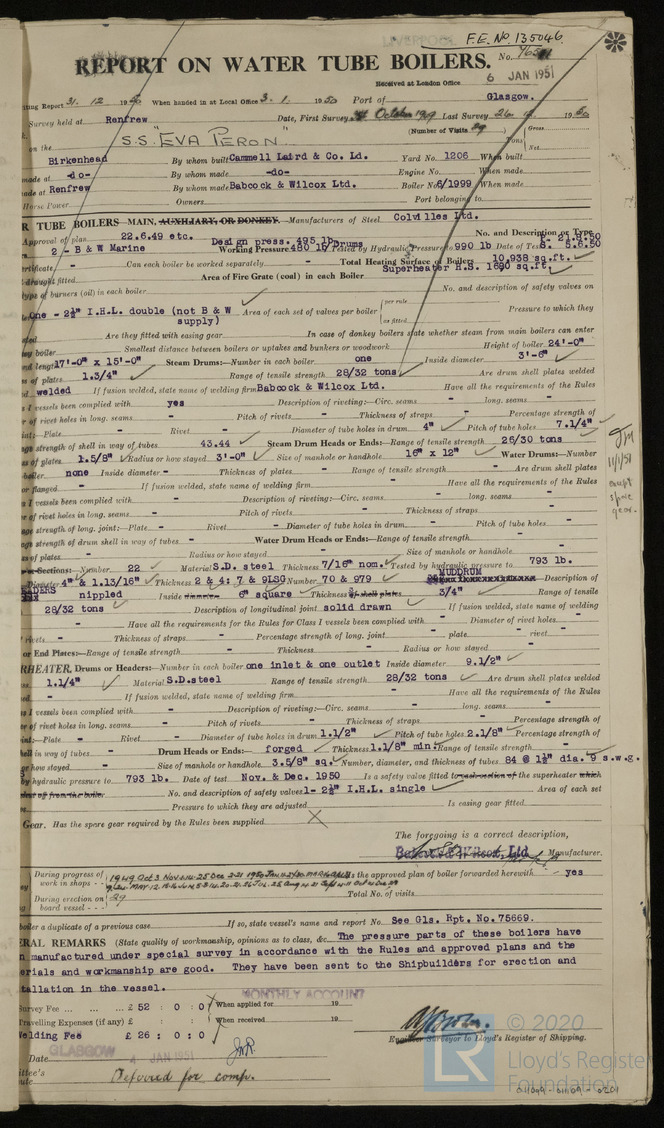 LIVERPOOL
F.E. No. 135046
REPORT ON WATER TUBE BOILERS. No.
Received at London Office 6 JAN 1951
ting Report 31. 12 19 When handed in at Local Office 3. 1. 1950 Port of Glasgow.
Survey held at Renfrew Date, First Survey October 1949 Last Survey 19 50
(Number of Visits 29) Gross
on the S.S "EVA PERON" Tons Net
Birkenhead By whom built Cammell Laird & Co. Ld. Yard No. 1206 When built
made at -do- By whom made -do- Engine No. When made
made at Renfrew By whom made Babcock & Wilcox Ltd. Boiler No. 6/1999 When made
Horse Power Owners Port belonging to
R TUBE BOILERS MAIN, AUXILIARY, OR DONKEY.—Manufacturers of Steel Colvilles Ltd.
Approval of plan 22.6.49 etc. Design press. 495 lb. No. and Description or Type
2 - B & W Marine Working Pressure 480 lb Drums Tested by Hydraulic Pressure to 990 lb Date of Test 5.6.50
ertificate - Can each boiler be worked separately - Total Heating Surface of Boilers 10,938 sq.ft.
draught fitted Area of Fire Grate (coal) in each Boiler Superheater H.S. 1690 sq.ft.
type of burners (oil) in each boiler No. and description of safety valves on
One - 2½" I.H.L. double (not B & W supply) Area of each set of valves per boiler per rule as fitted Pressure to which they
Are they fitted with easing gear In case of donkey boilers state whether steam from main boilers can enter
boiler Smallest distance between boilers or uptakes and bunkers or woodwork Height of boiler 24'-0"
length 17'-0" x 15'-0" Steam Drums:—Number in each boiler one Inside diameter 3'-6"
s of plates 1.3/4" Range of tensile strength 28/32 tons Are drum shell plates welded
welded If fusion welded, state name of welding firm Babcock & Wilcox Ltd. Have all the requirements of the Rules
s I vessels been complied with yes Description of riveting:—Circ. seams - long. seams -
r of rivet holes in long. seams - Pitch of rivets - Thickness of straps - Percentage strength of
int:—Plate - Rivet - Diameter of tube holes in drum 4" Pitch of tube holes 7.1/4"
ge strength of shell in way of tubes 43.44 Steam Drum Heads or Ends:—Range of tensile strength 26/30 tons
s of plates 1.5/8" Radius or how stayed 3'-0" Size of manhole or handhole 16" x 12" Water Drums:—Number
boiler none Inside diameter - Thickness of plates - Range of tensile strength - Are drum shell plates
or flanged - If fusion welded, state name of welding firm - Have all the requirements of the Rules
s I vessels been complied with - Description of riveting:—Circ. seams - long. seams -
er of rivet holes in long. seams - Pitch of rivets - Thickness of straps -
ge strength of long. joint:—Plate - Rivet - Diameter of tube holes in drum - Pitch of tube holes -
ge strength of drum shell in way of tubes - Water Drum Heads or Ends:—Range of tensile strength -
s of plates - Radius or how stayed - Size of manhole or handhole -
Sections: Number 22 Material S.D. steel Thickness 7/16" nom. Tested by hydraulic pressure to 793 lb.
Diameter 4" & 1.13/16" Thickness 2 & 4: 7 & 9LSG Number 70 & 979 MUDDRUM Description of
EADERS nippled Inside diameter 6" square Thickness of shell plates 3/4" Range of tensile
28/32 tons Description of longitudinal joint solid drawn If fusion welded, state name of welding
- Have all the requirements of the Rules for Class I vessels been complied with - Diameter of rivet holes -
rivets - Thickness of straps - Percentage strength of long. joint - plate - rivet -
or End Plates:—Range of tensile strength - Thickness - Radius or how stayed -
RHEATER, Drums or Headers:—Number in each boiler one inlet & one outlet Inside diameter 9.1/2"
1.1/4" Material S.D.steel Range of tensile strength 28/32 tons Are drum shell plates welded
ed. - If fusion welded, state name of welding firm - Have all the requirements of the Rules
s I vessels been complied with - Description of riveting:—Circ. seams - long. seams -
er of rivet holes in long. seams - Pitch of rivets - Thickness of straps - Percentage strength of
int:—Plate - Rivet - Diameter of tube holes in drum 1.1/2" Pitch of tube holes 2.1/8" Percentage strength of
hell in way of tubes - Drum Heads or Ends: forged Thickness 1.1/8" min. Range of tensile strength -
or how stayed - Size of manhole or handhole 3.5/8" sq. Number, diameter, and thickness of tubes 84 @ 1½" dia. 9 s.w.g.
by hydraulic pressure to 793 lb. Date of test Nov. & Dec. 1950 Is a safety valve fitted to each section of the superheater which
shut off from the boiler No. and description of safety valves 1- 2½" I.H.L. single Area of each set
Pressure to which they are adjusted Is easing gear fitted
Gear. Has the spare gear required by the Rules been supplied
The foregoing is a correct description,
Manufacturer.
During progress of work in shops - -
the approved plan of boiler forwarded herewith - yes
During erection on board vessel - - - 29 Total No. of visits
boiler a duplicate of a previous case If so, state vessel's name and report No. See Gls. Rpt. No. 75669.
ERAL REMARKS (State quality of workmanship, opinions as to class, &c. The pressure parts of these boilers have
n manufactured under special survey in accordance with the Rules and approved plans and the
erials and workmanship are good. They have been sent to the Shipbuilders for erection and
tallation in the vessel.
MONTHLY ACCOUNT
Survey Fee ... ... ... £ 52 : 0 : 0 When applied for 19
Travelling Expenses (if any) £ : : When received 19
Welding Fee £ 26 : 0 : 0
Engineer Surveyor to Lloyd's Register of Shipping.
Date GLASGOW 4 JAN 1951
ttee's
ute Deferred for comp.
© 2020
LR
Lloyd's Register
Foundation
011099-011109-0201